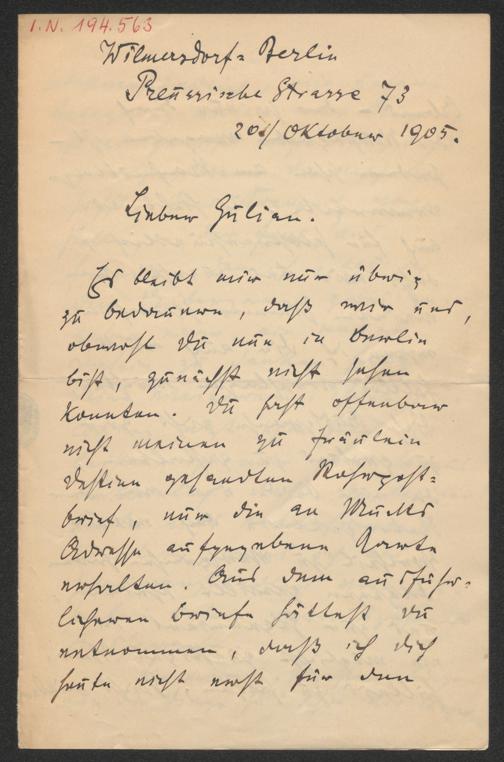 I.N. 194.563
Wilmersdorf-Berlin
Preussische Strasse 73
20/ Oktober 1905.
Lieber Gulian.
Es bleibt mir nur übrig
zu bedauern, daß wir uns,
obwohl du nun in Berlin
bist, zunächst nicht sehen
konnten. Du hast offenbar
nicht meinen zu Fräulein
gesandten Rohrpost-
brief, nur die an Mucks
Adresse aufgegebene Karte
erhalten. Aus dem ausführ-
licheren Briefe hättest du
entnommen, daß ich dich
heute nicht erst für den